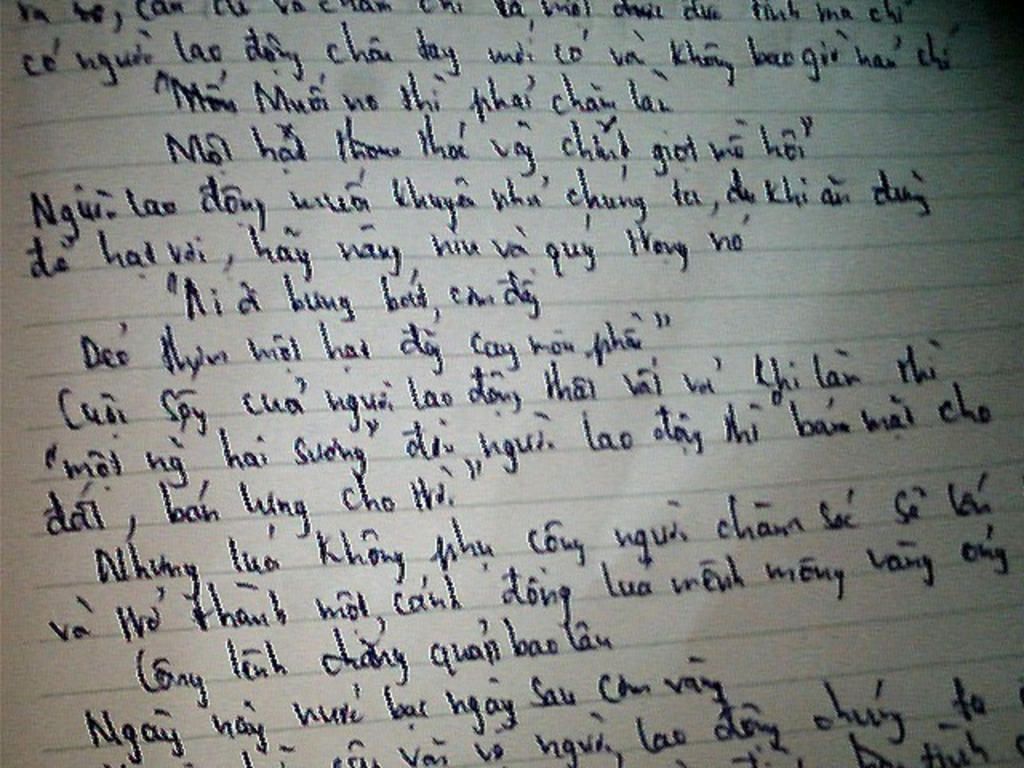 có người lao động chân tay mới có và không bao giờ hạn chế
"Muốn no thì phải chăm làm
Một hạt thóc vàng chín giọt mồ hôi"
Người lao động muốn khuyên nhủ chúng ta, dù khi ăn dùng
đó hạt vơi, hãy nâng niu và quý trọng nó
"Ai ơi bưng bát cơm đầy
Dẻo thơm một hạt đắng cay muôn phần"
Cuộc sống của người lao động thật vất vả khi làm thì
"một nắng hai sương" đến người lao động thì "bán mặt cho
đất, bán lưng cho trời"
Nhưng lúa không phụ công người chăm sóc sẽ lớn
và trở thành một cánh đồng lúa mênh mông vàng óng
Công lênh chẳng quản bao lâu
Ngày nay nước bạc ngày sau cơm vàng
người lao động chúng ta